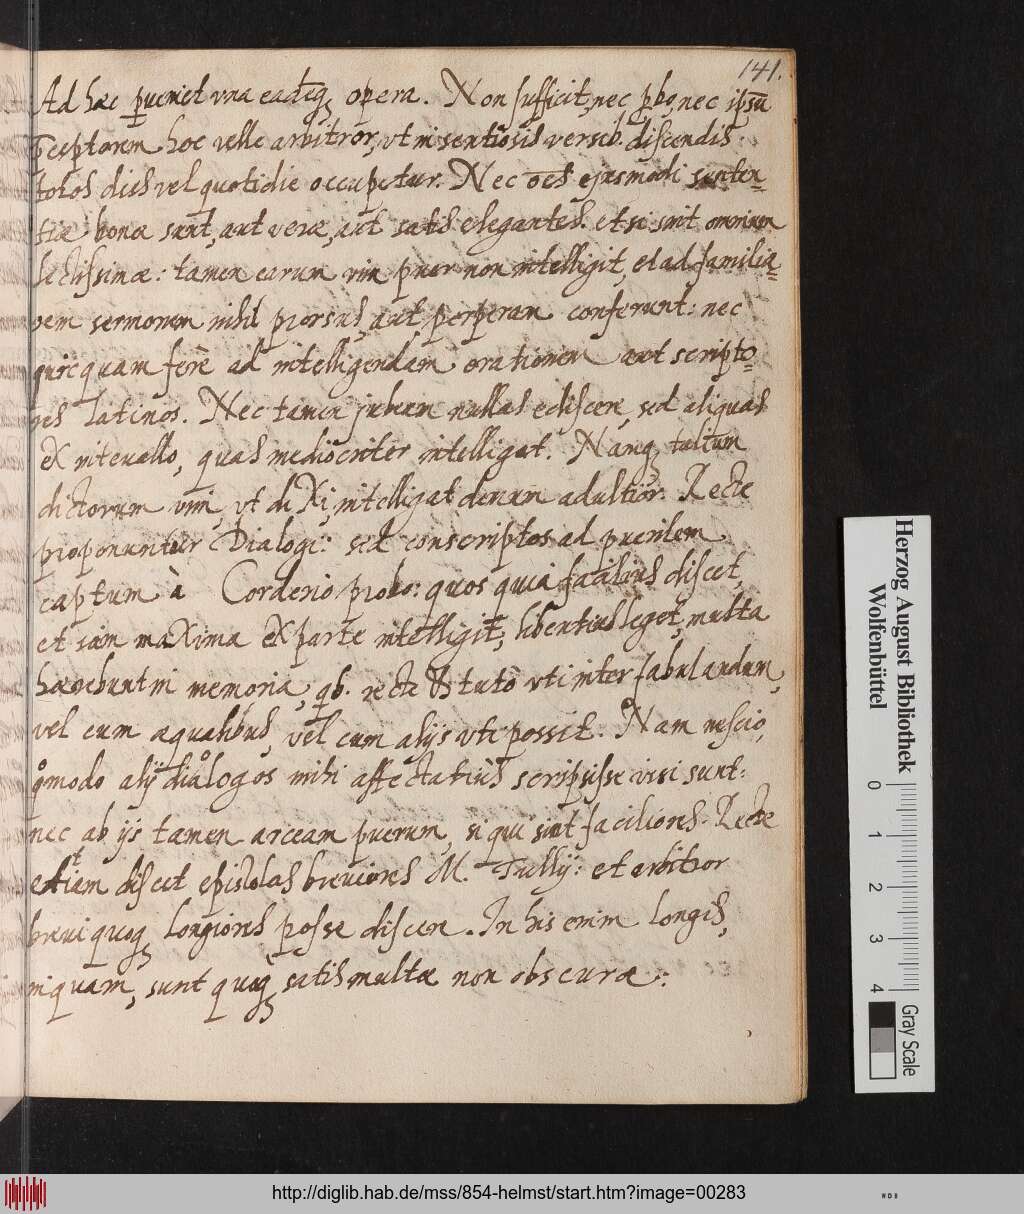 141.
Ad hæc pueniet vna eadēq; opera. Non sufficit, nec pbo, nec ipsū
p̄ceptorem hoc velle arbitror, vt in sentiosis versib. discendis
totos dies vel quotidie occupetur. Nec oēs ejusmodi senten=
tiæ bonæ sunt, aut veræ, aut satis elegantes. et si sint omnium
lectissimæ: tamen earum vim puer non intelligit, et ad familia=
rem sermonem nihil prorsus, aut perperam conferunt: nec
quicquam ferè ad intelligendam orationem aut scripto=
res latinos. Nec tamen jubeam nullas ediscere, sed aliquas
ex interuallo, quas mediocriter intelligat. Nanq; talium
dictorum vim, vt dixi, intelligat demum adultior. Recte
proponuntur Dialogi: sed conscriptos ad puerilem
captum à Corderio probo: quos quia facilius discet,
et iam maxima ex parte intelligit, libentius leget, multa
hærebunt in memoria, qb. recte & tutò vti inter fabulandum,
vel cum æqualibus, vel cum alijs vti possit. Nam nescio,
qmodo alij dialogos mihi affectatius scripsisse visi sunt:
nec ab ijs tamen arceam puerum, si qui sint faciliores. Recte
etiam discet epistolas breuiores M. Tullij: et arbitror
breui quoq; longiores posse discere. In his enim longis,
inquam, sunt quoq; satis multæ non obscuræ:
Herzog August Bibliothek
Wolfenbüttel
0 1 2 3 4
Gray Scale
http://diglib.hab.de/mss/854-helmst/start.htm?image=00283
WDB